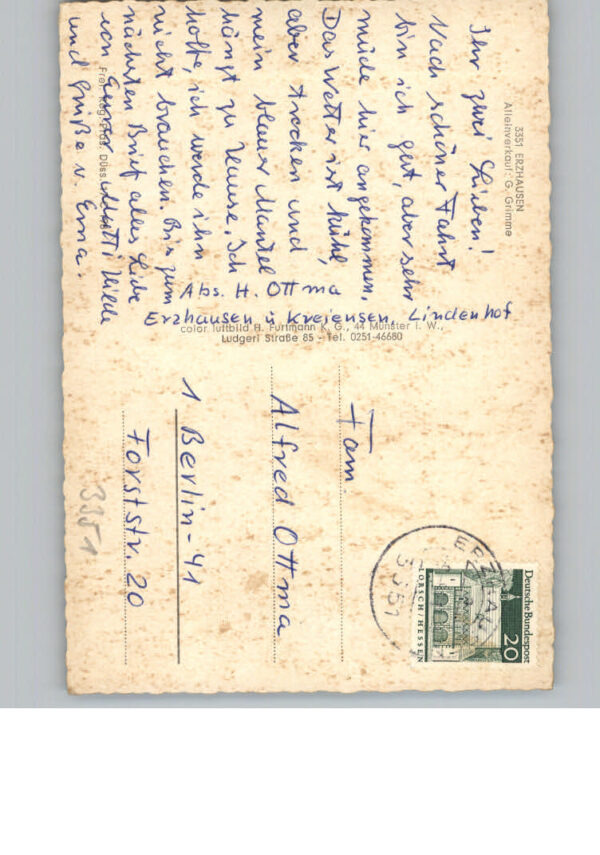 3351 ERZHAUSEN
Alleinverkauf: G. Grimme
Ihr zwei Lieben!
Nach schöner Fahrt
bin ich gut, aber sehr
müde hier angekommen.
Das Wetter ist kühl,
aber trocken und
mein blauer Mantel
hängt zu Hause. Ich
hoffe, ich werde ihn
nicht brauchen. Bis zum
nächsten Brief alles Liebe
von Eurer Mutti
und Grüße v. Erna.
Abs. H. Ottma
Erzhausen ü Kreiensen, Lindenhof
color luftbild H. Furtmann K. G., 44 Münster i. W.,
Ludgeri Straße 85 - Tel. 0251-46680
Freig. Reg. Präs. Düss.
Fam.
Alfred Ottma
1 Berlin-41
Forststr. 20
3351
Deutsche Bundespost
20
LORSCH/HESSEN
3351